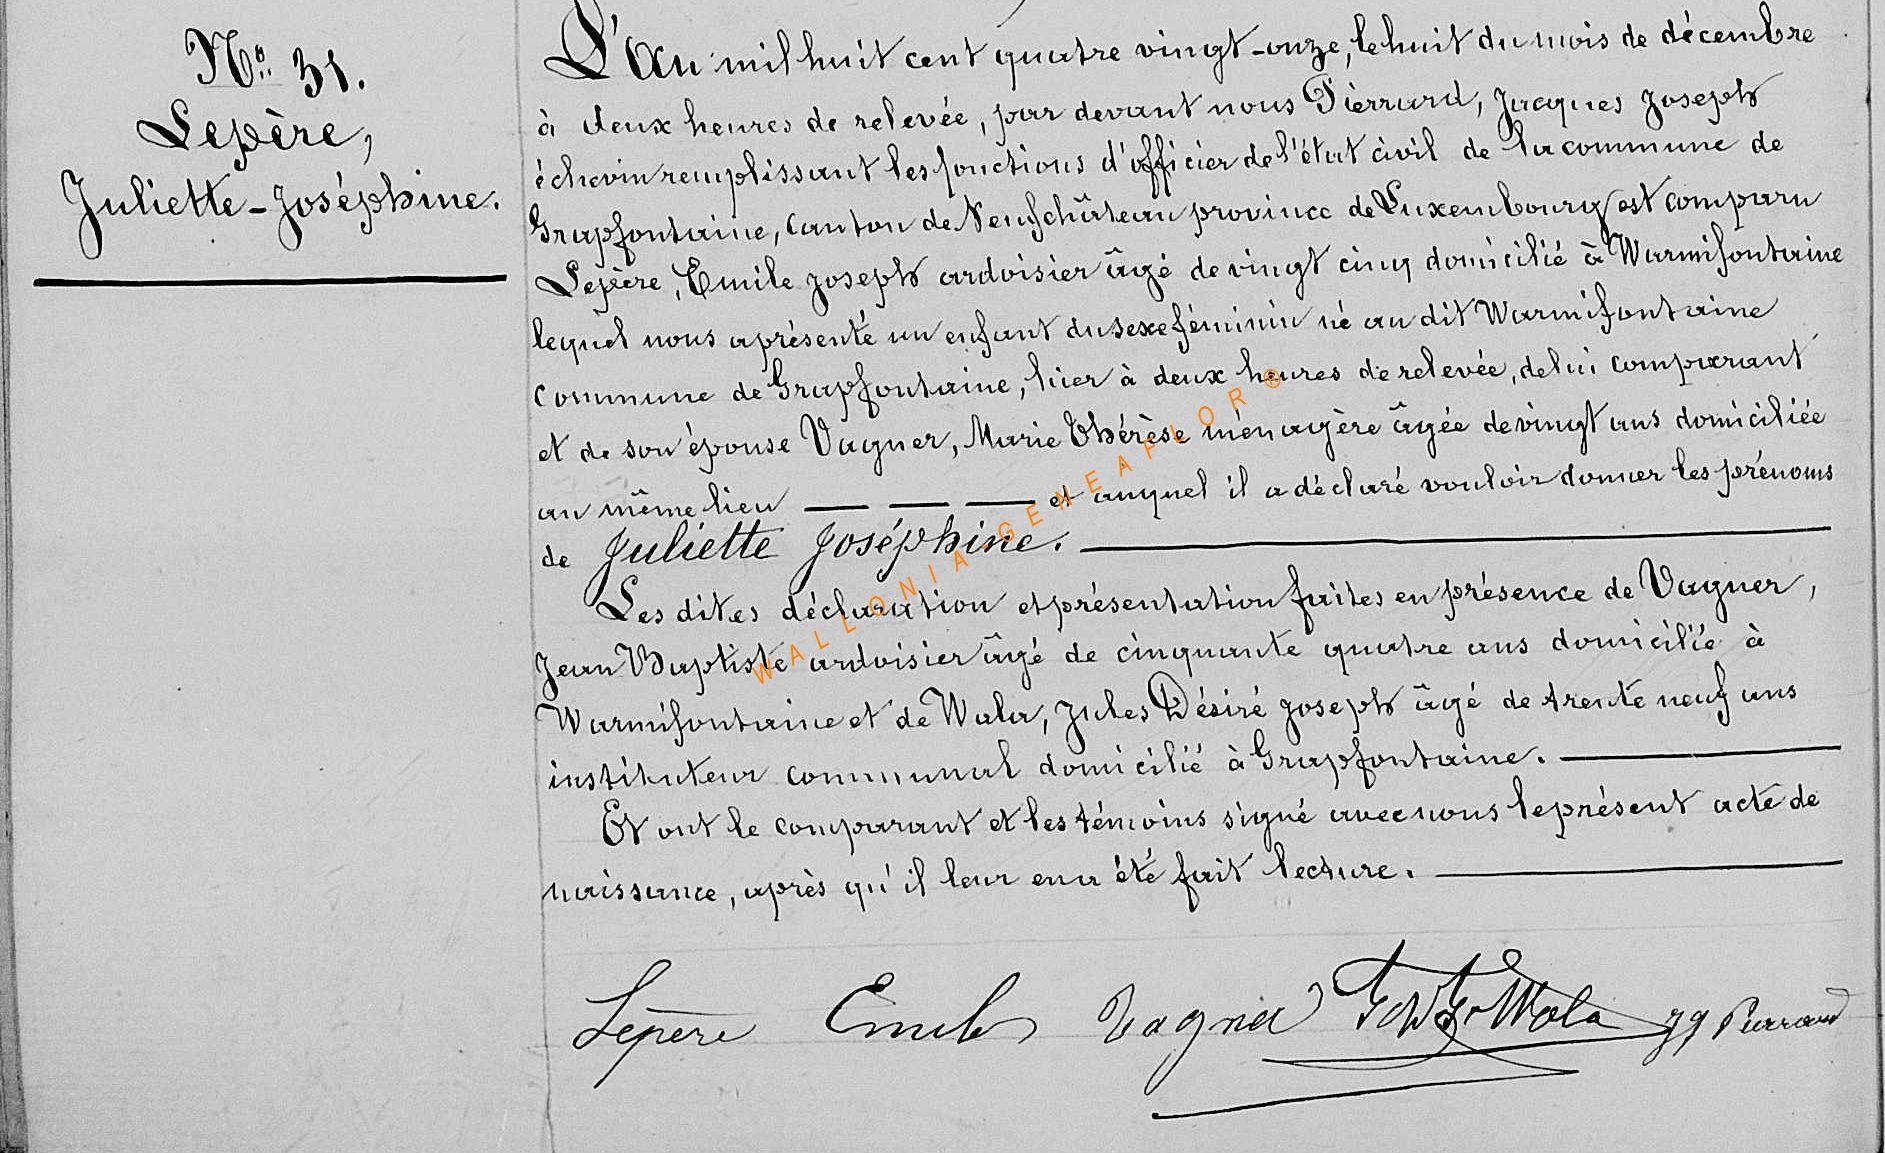 No. 31.
Lepère,
Juliette-Joséphine.
L'An mil huit cent quatre vingt-onze, le huit du mois de décembre
à deux heures de relevée, par devant nous Pierrard, Jacques Joseph
échevin remplissant les fonctions d'officier de l'état civil de la commune de
Grapfontaine, canton de Neufchâteau province de Luxembourg est comparu
Lepère, Emile Joseph ardoisier âgé de vingt cinq domicilié à Warmifontaine
lequel nous a présenté un enfant du sexe féminin né au dit Warmifontaine
commune de Grapfontaine, hier à deux heures de relevée, de lui comparant
et de son épouse Vagner, Marie Thérèse ménagère âgée de vingt ans domiciliée
au même lieu — — — et auquel il a déclaré vouloir donner les prénoms
de Juliette Joséphine. —
Les dites déclaration et présentation faites en présence de Vagner,
Jean Baptiste ardoisier âgé de cinquante quatre ans domicilié à
Warmifontaine et de Wala, Jules Désiré Joseph âgé de trente neuf ans
instituteur communal domicilié à Grapfontaine. —
Et ont le comparant et les témoins signé avec nous le présent acte de
naissance, après qu'il leur en a été fait lecture. —
Lepère Emile Vagner Wala JJ Pierrard
WALLONIA GENEAFLOR ®